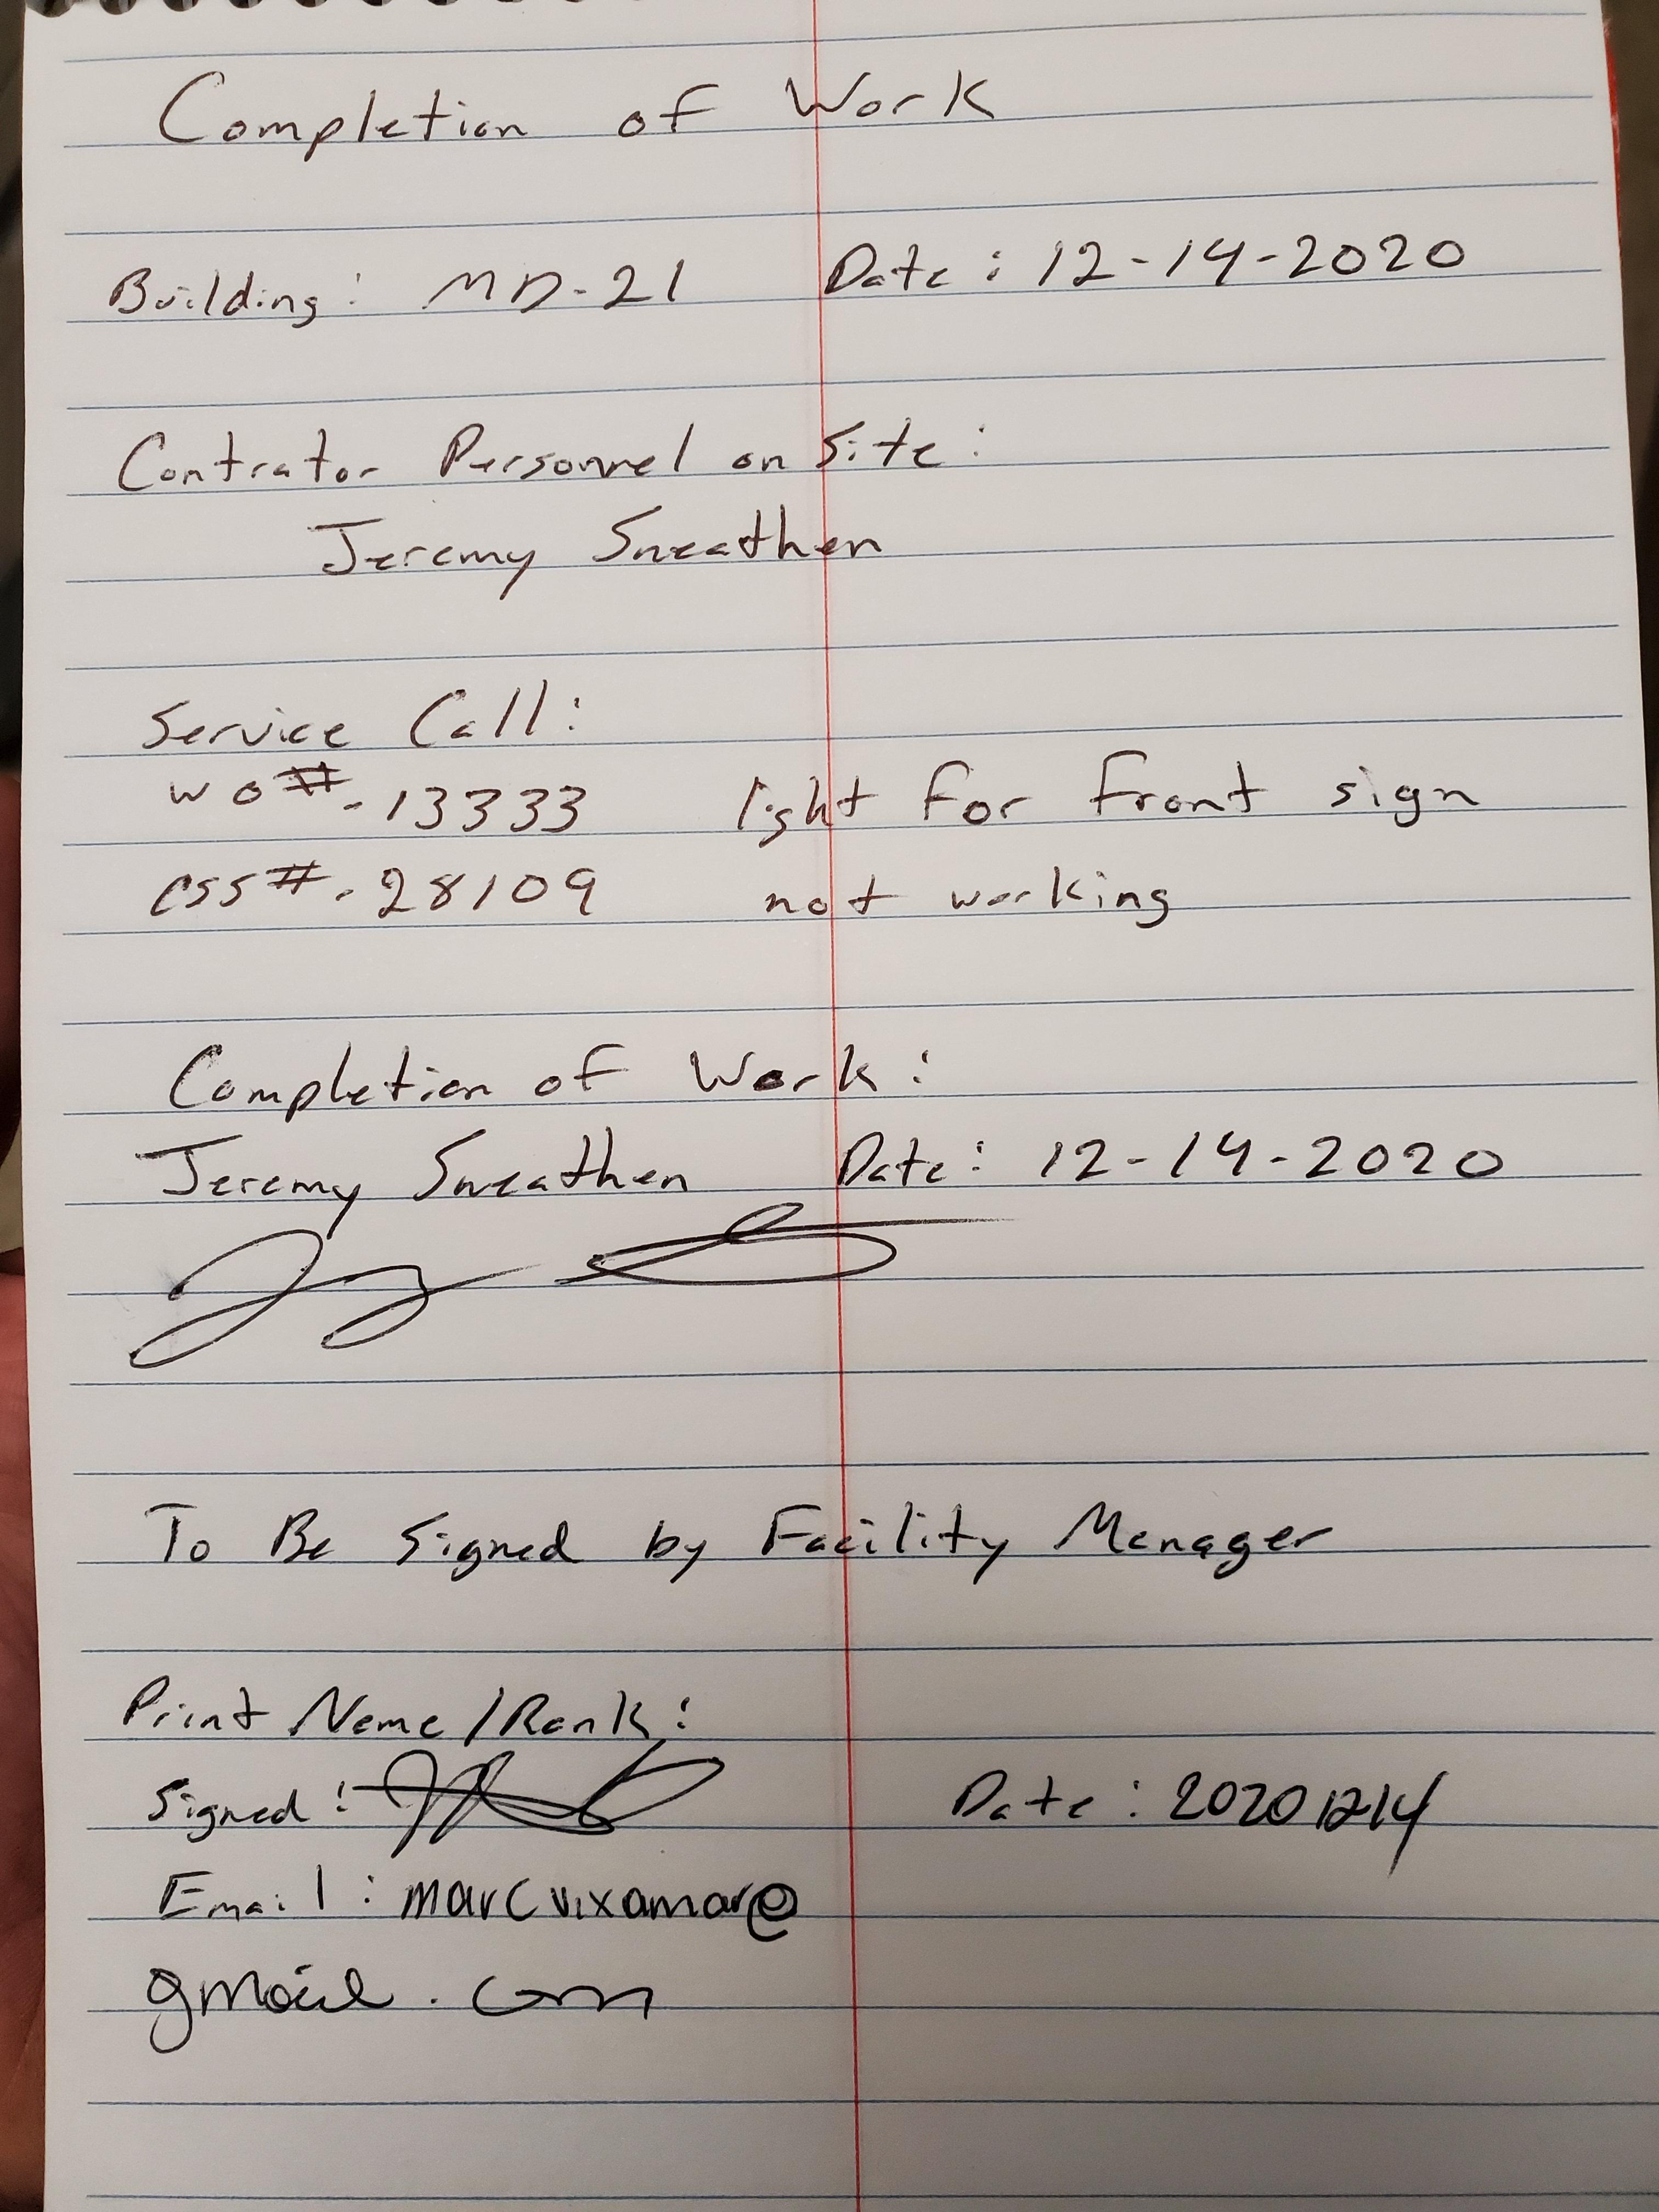 Completion of Work
Building: MD-21 Date: 12-14-2020
Contrator Personnel on Site:
Jeremy Sneathen
Service Call:
WO#-13333 light for front sign
CSS#-28109 not working
Completion of Work:
Jeremy Sneathen Date: 12-14-2020
To Be Signed by Facility Manager
Print Name/Rank:
Signed: Date: 20201214
Email: marcvixamar@
gmail.com